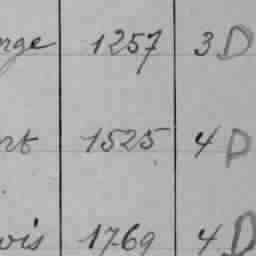 nge 1257 3 D
nt 1525 4 D
ois 1769 4 D